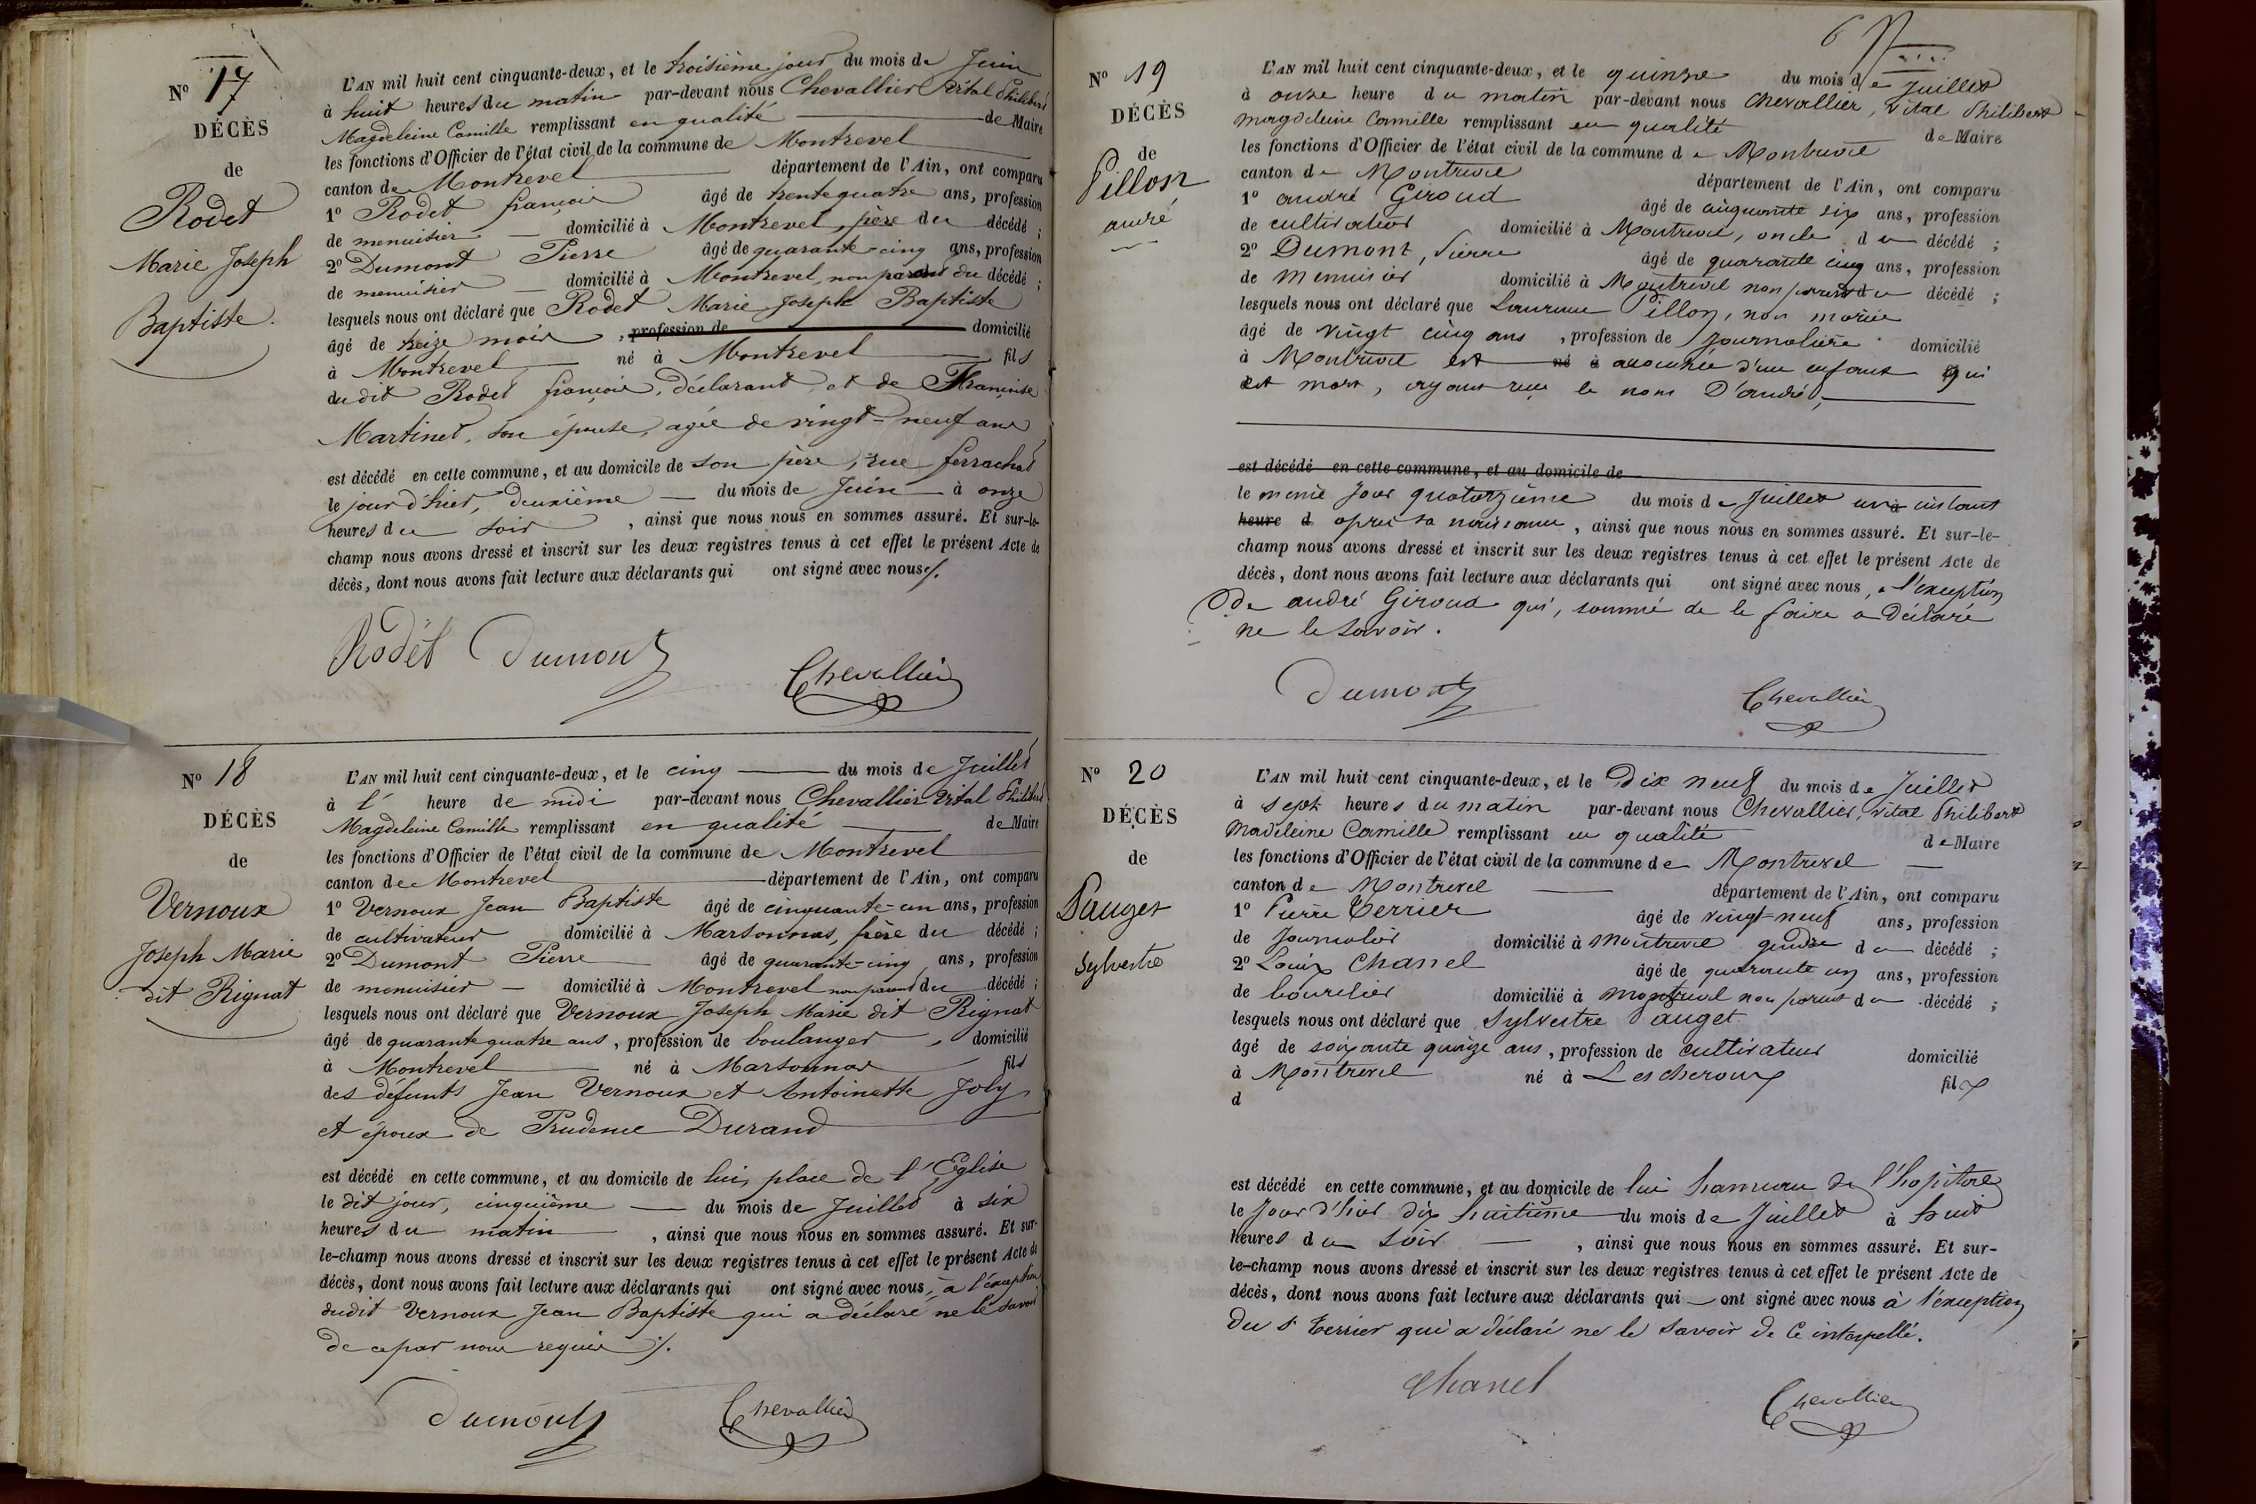 N° 17
DÉCÈS
de
Rodet
Marie Joseph
Baptiste.
L'AN mil huit cent cinquante-deux, et le troisième jour du mois de Juin
à huit heures du matin par-devant nous Chevallier Vital Philibert
Magdeleine Camille remplissant en qualité de Maire
les fonctions d'Officier de l'état civil de la commune de Montrevel
canton de Montrevel département de l'Ain, ont comparu
1° Rodet françois âgé de trente quatre ans, profession
de menuisier domicilié à Montrevel, père du décédé ;
2° Dumont Pierre âgé de quarante-cinq ans, profession
de menuisier domicilié à Montrevel, non parent du décédé ;
lesquels nous ont déclaré que Rodet Marie Joseph Baptiste
âgé de treize mois, profession de domicilié
à Montrevel né à Montrevel fils
du dit Rodet françois, déclarant, et de Françoise
Martinet, son épouse, agée de vingt-neuf ans
est décédé en cette commune, et au domicile de son père, rue ferrachat
le jour d'hier, deuxième du mois de Juin à onze
heures du soir, ainsi que nous nous en sommes assuré. Et sur-le-
champ nous avons dressé et inscrit sur les deux registres tenus à cet effet le présent Acte de
décès, dont nous avons fait lecture aux déclarants qui ont signé avec nous/.
Rodet Dumont Chevallier
N° 18
DÉCÈS
de
Vernoux
Joseph Marie
dit Rignat
L'AN mil huit cent cinquante-deux, et le cinq du mois de Juillet
à l' heure de midi par-devant nous Chevallier Vital Philibert
Magdeleine Camille remplissant en qualité de Maire
les fonctions d'Officier de l'état civil de la commune de Montrevel
canton de Montrevel département de l'Ain, ont comparu
1° Vernoux Jean Baptiste âgé de cinquante-un ans, profession
de cultivateur domicilié à Marsonnas, frère du décédé ;
2° Dumont Pierre âgé de quarante-cinq ans, profession
de menuisier domicilié à Montrevel non parent du décédé ;
lesquels nous ont déclaré que Vernoux Joseph Marie dit Rignat
âgé de quarante quatre ans, profession de boulanger, domicilié
à Montrevel né à Marsonnas fils
des défunts Jean Vernoux et Antoinette Joly
et époux de Prudence Durand
est décédé en cette commune, et au domicile de lui, place de l'Eglise
le dit jour, cinquième du mois de Juillet à six
heures du matin, ainsi que nous nous en sommes assuré. Et sur-
le-champ nous avons dressé et inscrit sur les deux registres tenus à cet effet le présent Acte de
décès, dont nous avons fait lecture aux déclarants qui ont signé avec nous, à l'exception
dudit Vernoux Jean Baptiste qui a déclaré ne le savoir
de ce par nous requis /.
Dumont Chevallier
6
N° 19
DÉCÈS
de
Pillon
andré
L'AN mil huit cent cinquante-deux, et le quinze du mois de Juillet
à onze heure du matin par-devant nous Chevallier, Vital Philibert
Magdeleine Camille remplissant en qualité de Maire
les fonctions d'Officier de l'état civil de la commune de Montrevel
canton de Montrevel département de l'Ain, ont comparu
1° andré Giroud âgé de cinquante six ans, profession
de cultivateur domicilié à Montrevel, oncle du décédé ;
2° Dumont, Pierre âgé de quarante cinq ans, profession
de Menuisier domicilié à Montrevel non parent du décédé ;
lesquels nous ont déclaré que Laurence Pillon, non mariée
âgé de vingt cinq ans, profession de journalière domicilié
à Montrevel est né à accouchée d'un enfant qui
est mort, ayant reçu le nom D'andré,
est décédé en cette commune, et au domicile de
le même jour quatorzième du mois de Juillet un à instant
heure d après sa naissance, ainsi que nous nous en sommes assuré. Et sur-le-
champ nous avons dressé et inscrit sur les deux registres tenus à cet effet le présent Acte de
décès, dont nous avons fait lecture aux déclarants qui ont signé avec nous, a l'exception
de andré Giroud qui, sommé de le faire a Déclaré
ne le savoir.
Dumont Chevallier
N° 20
DÉCÈS
de
Pauget
Sylvestre
L'AN mil huit cent cinquante-deux, et le Dix neuf du mois de Juillet
à sept heures du matin par-devant nous Chevallier, Vital Philibert
Madeleine Camille remplissant en qualité de Maire
les fonctions d'Officier de l'état civil de la commune de Montrevel
canton de Montrevel département de l'Ain, ont comparu
1° Pierre Terrier âgé de vingt-neuf ans, profession
de Journalier domicilié à Montrevel gendre du décédé ;
2° Louis Chanel âgé de quarante un ans, profession
de bourelier domicilié à Montrevel non parent du décédé ;
lesquels nous ont déclaré que Sylvestre Pauget
âgé de soixante quinze ans, profession de cultivateur domicilié
à Montrevel né à Lescheroux fils
d
est décédé en cette commune, et au domicile de lui hameau de l'hopital
le Jour d'hier dix huitième du mois de Juillet à huit
heures du soir, ainsi que nous nous en sommes assuré. Et sur-
le-champ nous avons dressé et inscrit sur les deux registres tenus à cet effet le présent Acte de
décès, dont nous avons fait lecture aux déclarants qui ont signé avec nous à l'exception
Du s Terrier qui a déclaré ne le savoir de ce interpellé.
Chanel Chevallier